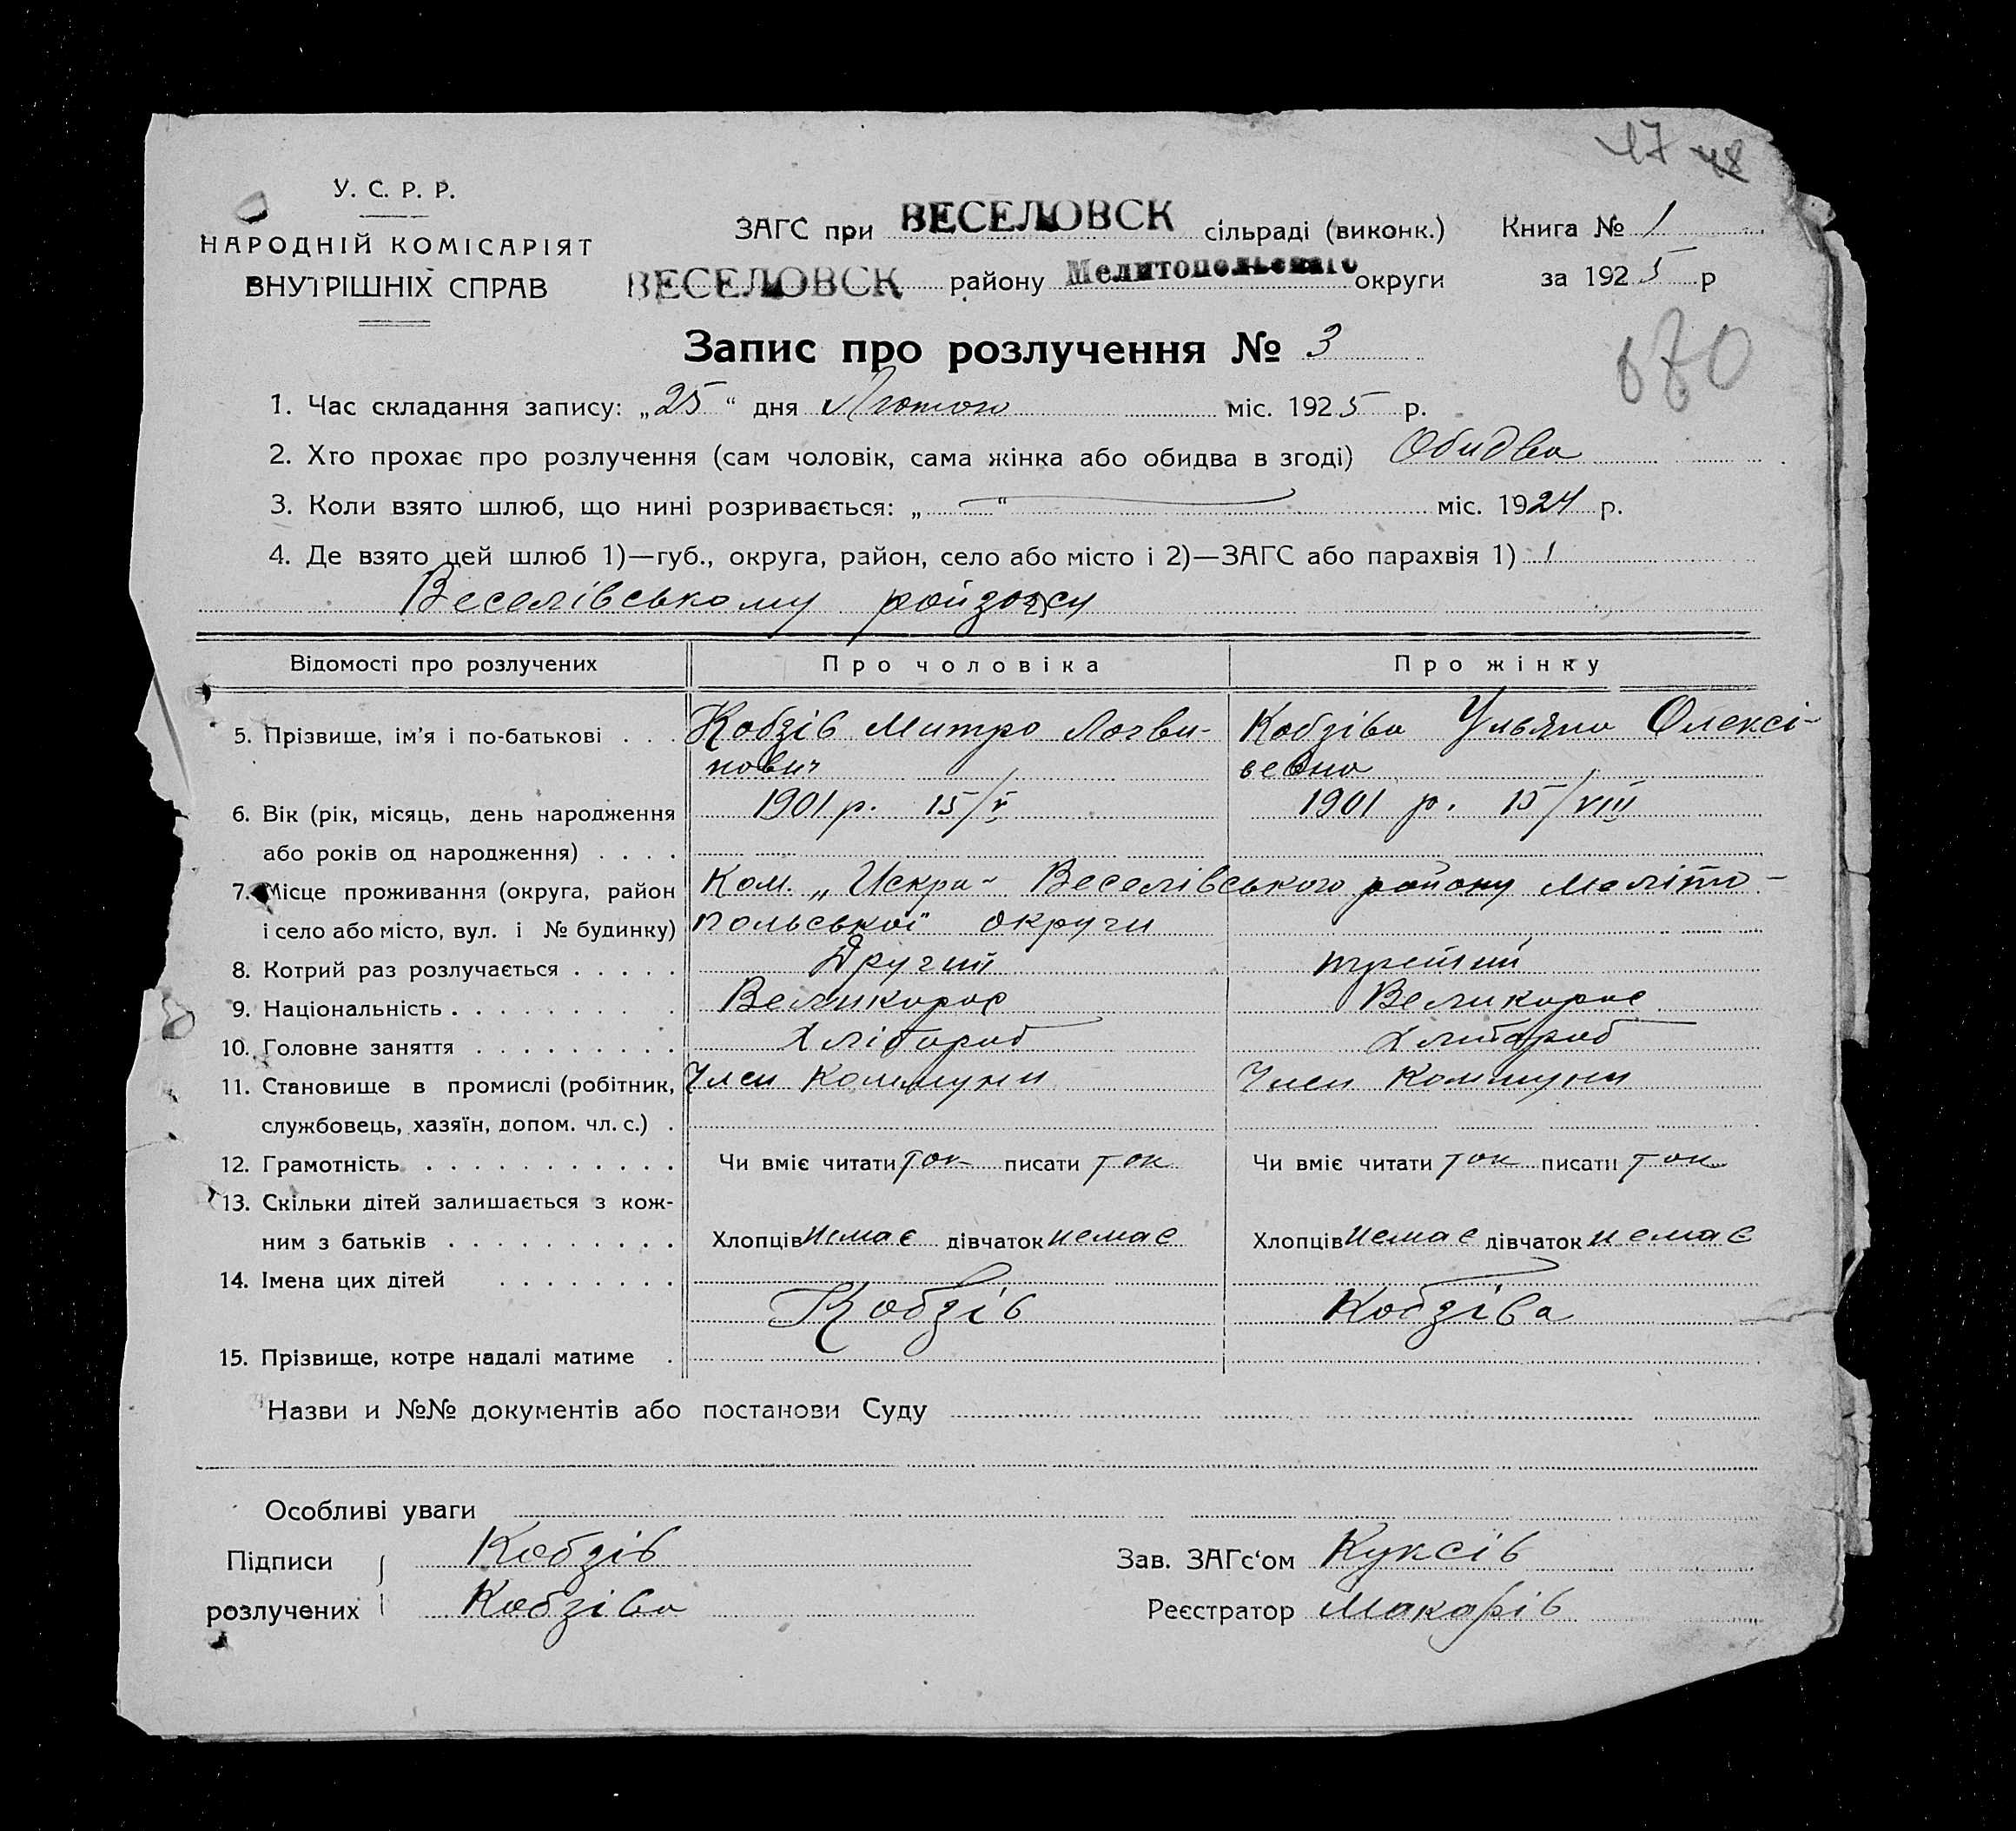 47 48
У. С. Р. Р.
НАРОДНІЙ КОМІСАРІЯТ
ВНУТРІШНІХ СПРАВ
ЗАГС при ВЕСЕЛОВСК сільраді (виконк.) Книга № 1
ВЕСЕЛОВСК району Мелитопольского округи за 1925 р
Запис про розлучення № 3
1. Час складання запису: „25“ дня Лютого міс. 1925 р.
2. Хто прохає про розлучення (сам чоловік, сама жінка або обидва в згоді) Обидва
3. Коли взято шлюб, що нині розривається: „ “ міс. 1924 р.
4. Де взято цей шлюб 1)—губ., округа, район, село або місто і 2)—ЗАГС або парахвія 1)
Веселівському райзагсу
Відомості про розлучених Про чоловіка Про жінку
5. Прізвище, ім'я і по-батькові . . . Кобзів Митро Логви- Кобзіва Ульяна Олексі-
нович евна
6. Вік (рік, місяць, день народження 1901 р. 15/V 1901 р. 15/VIII
або років од народження) . . . .
7. Місце проживання (округа, район Ком. „Искра“ Веселівського району Меліто-
і село або місто, вул. і № будинку) польської округи
8. Котрий раз розлучається . . . . . Другий третий
9. Національність . . . . . . . . . Великорос Великорос
10. Головне заняття . . . . . . . . . Хлібороб Хлібороб
11. Становище в промислі (робітник, Член Коммуни Член Коммуни
службовець, хазяїн, допом. чл. с.) .
12. Грамотність . . . . . . . . . . . Чи вміє читати так писати так Чи вміє читати так писати так
13. Скільки дітей залишається з кож-
ним з батьків . . . . . . . . . . Хлопців немає дівчаток немає Хлопців немає дівчаток немає
14. Імена цих дітей . . . . . . . .
Кобзів Кобзіва
15. Прізвище, котре надалі матиме .
Назви и №№ документів або постанови Суду
Особливі уваги
Підписи Кобзів Зав. ЗАГс‘ом Куксів
розлучених Кобзіва Реєстратор Макарів